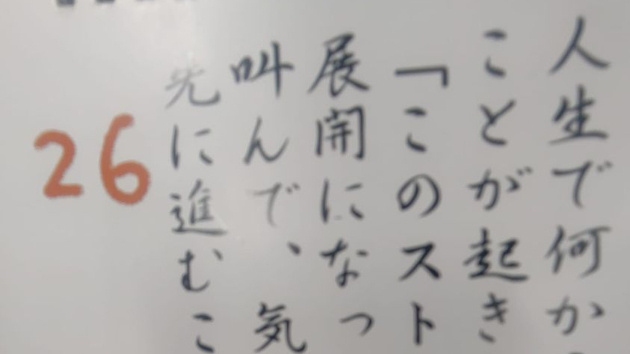 人生で何か
ことが起き
「このスト
展開になっ
叫んで、気
先に進むこ
26